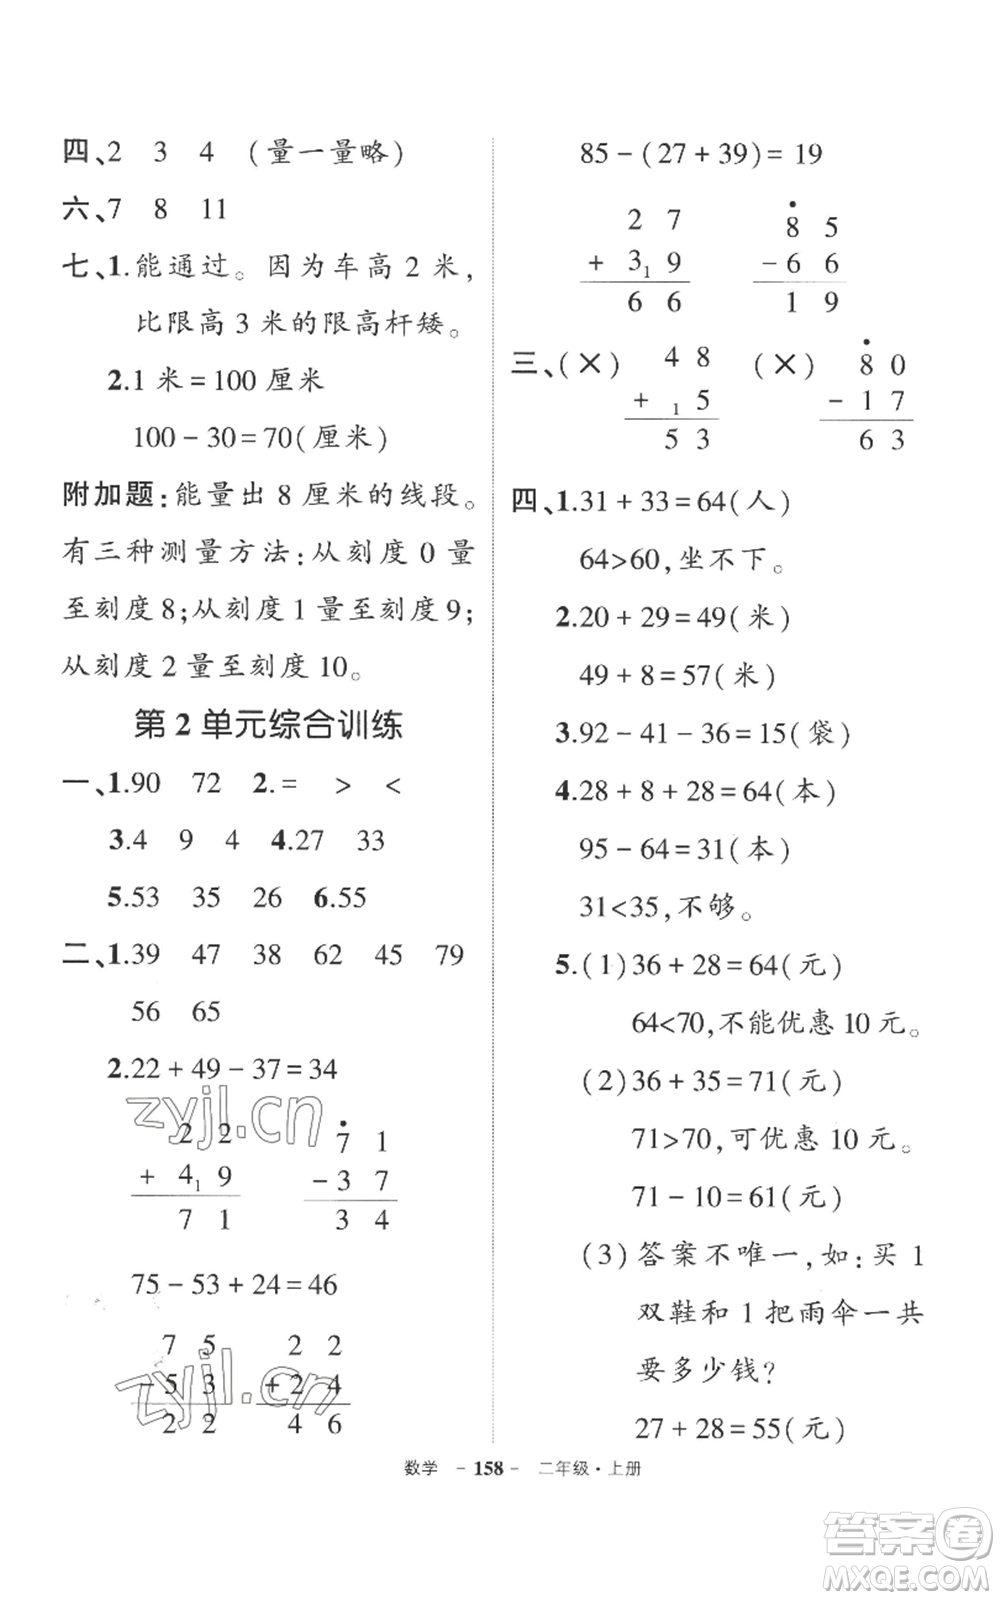 四、2 3 4 (量一量略)
六、7 8 11
七、1.能通过。因为车高 2 米,
比限高 3 米的限高杆矮。
2.1 米=100 厘米
100-30=70(厘米)
附加题:能量出 8 厘米的线段。
有三种测量方法:从刻度 0 量
至刻度 8;从刻度 1 量至刻度 9;
从刻度 2 量至刻度 10。
第 2 单元综合训练
一、1.90 72 2.= > <
3.4 9 4 4.27 33
5.53 35 26 6.55
二、1.39 47 38 62 45 79
56 65
2.22+49-37=34
2 2 7 1
+ 4 1 9 - 3 7
7 1 3 4
75-53+24=46
7 5 2 2
- 5 3 + 2 4
2 2 4 6
85-(27+39)=19
2 7 8 5
+ 3 1 9 - 6 6
6 6 1 9
三、(×) 4 8 (×) 8 0
+ 1 5 - 1 7
5 3 6 3
四、1.31+33=64(人)
64>60,坐不下。
2.20+29=49(米)
49+8=57(米)
3.92-41-36=15(袋)
4.28+8+28=64(本)
95-64=31(本)
31<35,不够。
5.(1)36+28=64(元)
64<70,不能优惠 10 元。
(2)36+35=71(元)
71>70,可优惠 10 元。
71-10=61(元)
(3)答案不唯一,如:买 1
双鞋和 1 把雨伞一共
要多少钱?
27+28=55(元)
数学 - 158 - 二年级·上册
zyjl.cn
zyjl.cn
答案卷
MXQE.COM